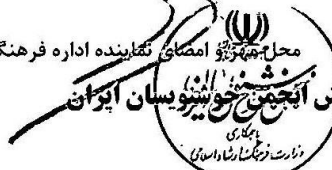 محل مهر و امضای نماینده اداره فرهنگ
انجمن خوشنویسان ایران
باهمکاری
وزارت فرهنگ و ارشاد اسلامی